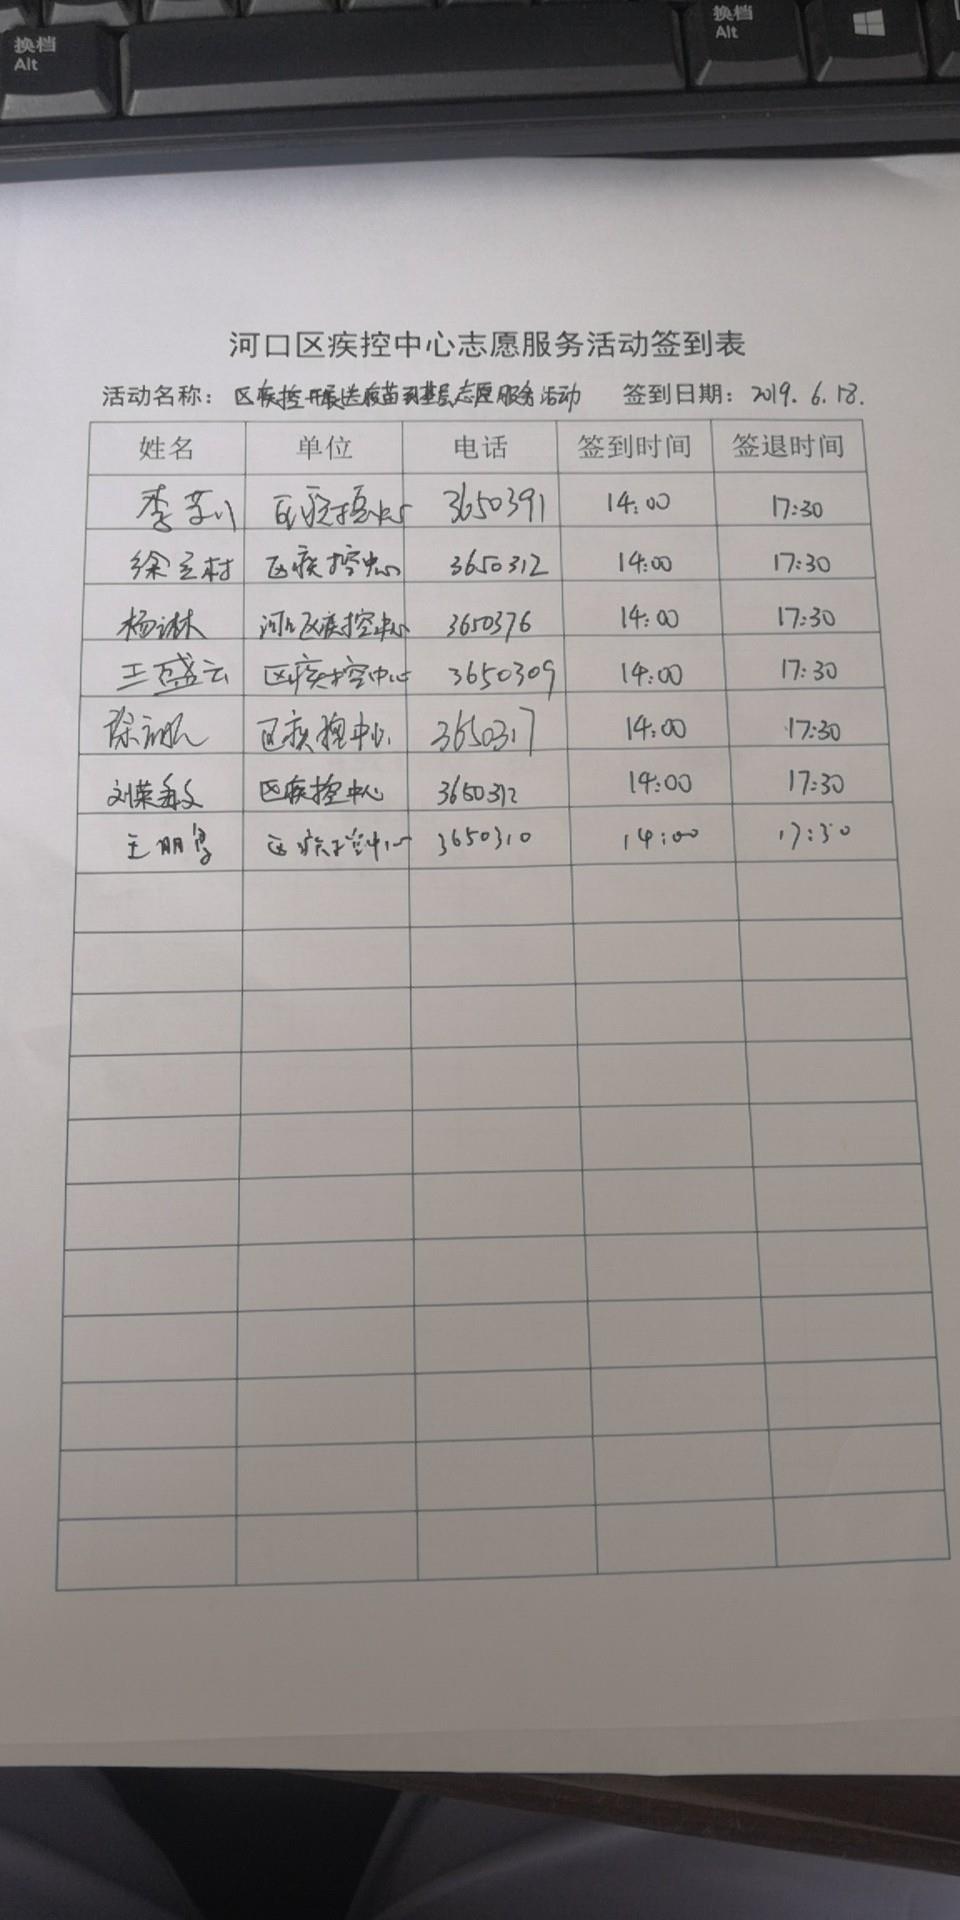 换档 换档
Alt Alt
河口区疾控中心志愿服务活动签到表
活动名称：区疾控开展送疫苗到基层志愿服务活动 签到日期：2019.6.18.
姓名 单位 电话 签到时间 签退时间
李 区疾控中心 3650391 14:00 17:30
徐立村 区疾控中心 3650312 14:00 17:30
杨淋 河口区疾控中心 3650376 14:00 17:30
王盛云 区疾控中心 3650309 14:00 17:30
区疾控中心 3650317 14:00 17:30
刘荣敏 区疾控中心 3650312 14:00 17:30
王朋 区疾控中心 3650310 14:00 17:30